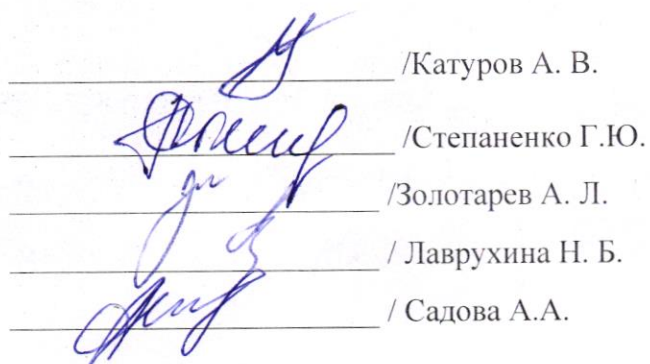 /Катуров А. В.
/Степаненко Г.Ю.
/Золотарев А. Л.
/ Лаврухина Н. Б.
/ Садова А.А.